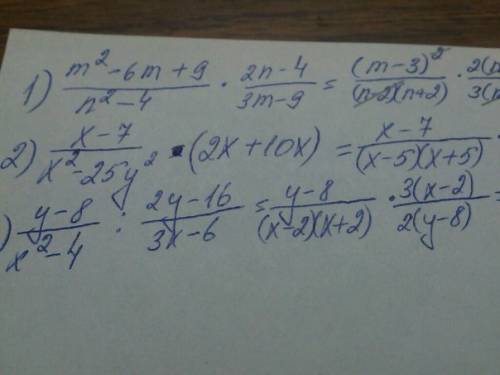 1) (m²-6m+9)/(n²-4) · (2n-4)/(3m-9) = (m-3)²/((n-2)(n+2)) · 2(n/3(
2) (x-7)/(x²-25y²) · (2x+10x) = (x-7)/((x-5)(x+5)) ·
) (y-8)/(x²-4) : (2y-16)/(3x-6) = (y-8)/((x-2)(x+2)) · 3(x-2)/(2(y-8)) =